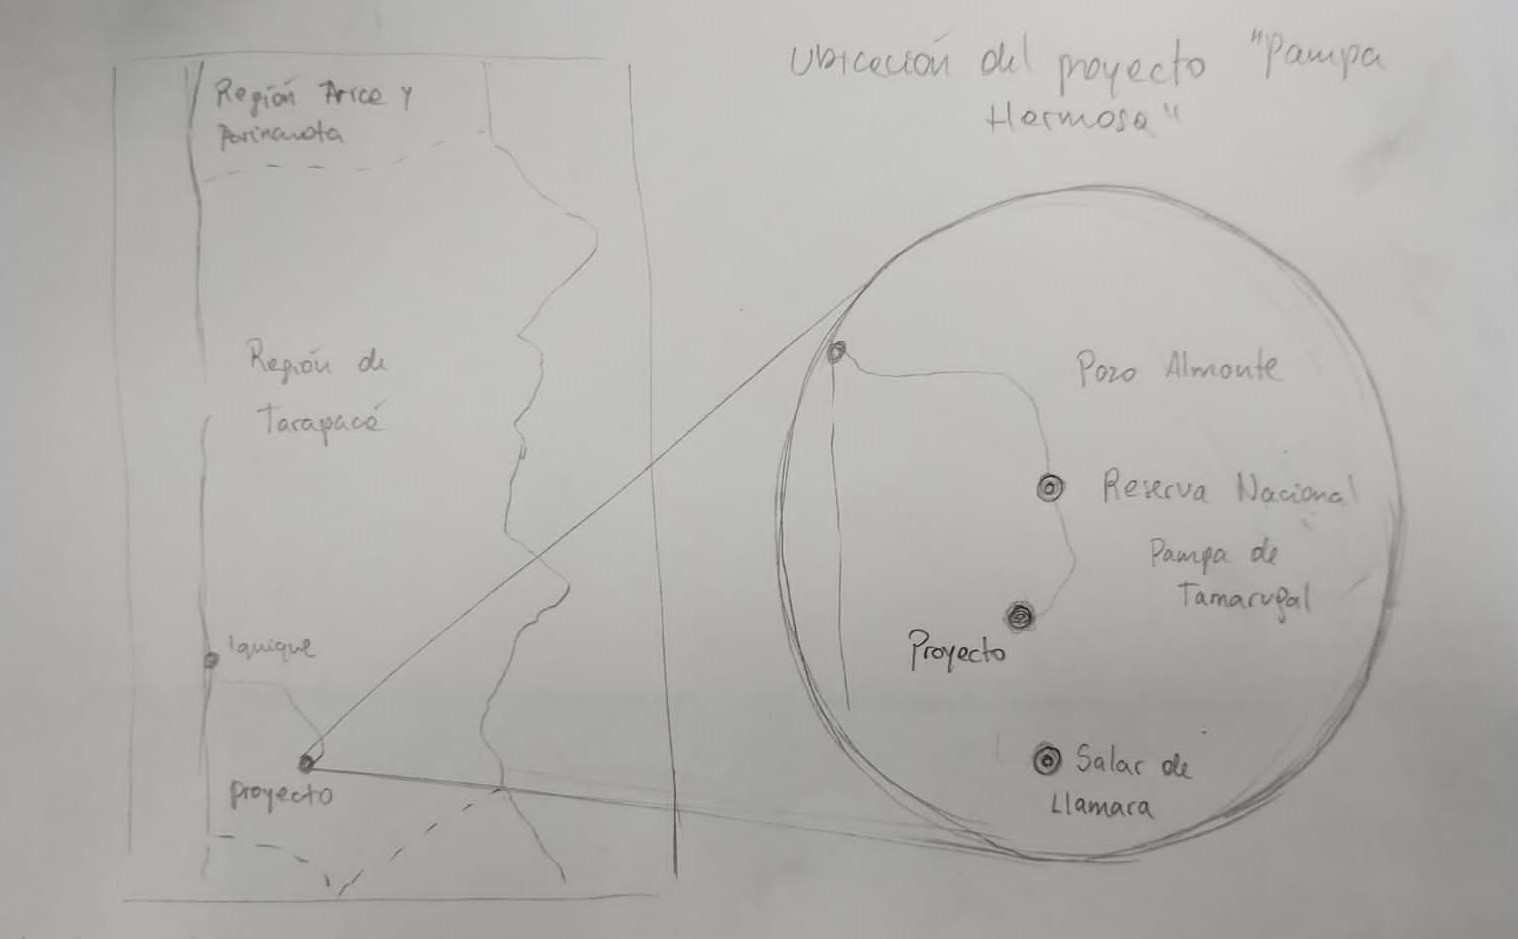 Ubicación del proyecto "Pampa
Hermosa"
Región Arica y
Parinacota
Región de
Tarapacá
Iquique
proyecto
Pozo Almonte
Reserva Nacional
Pampa de
Tamarugal
Proyecto
Salar de
Llamara